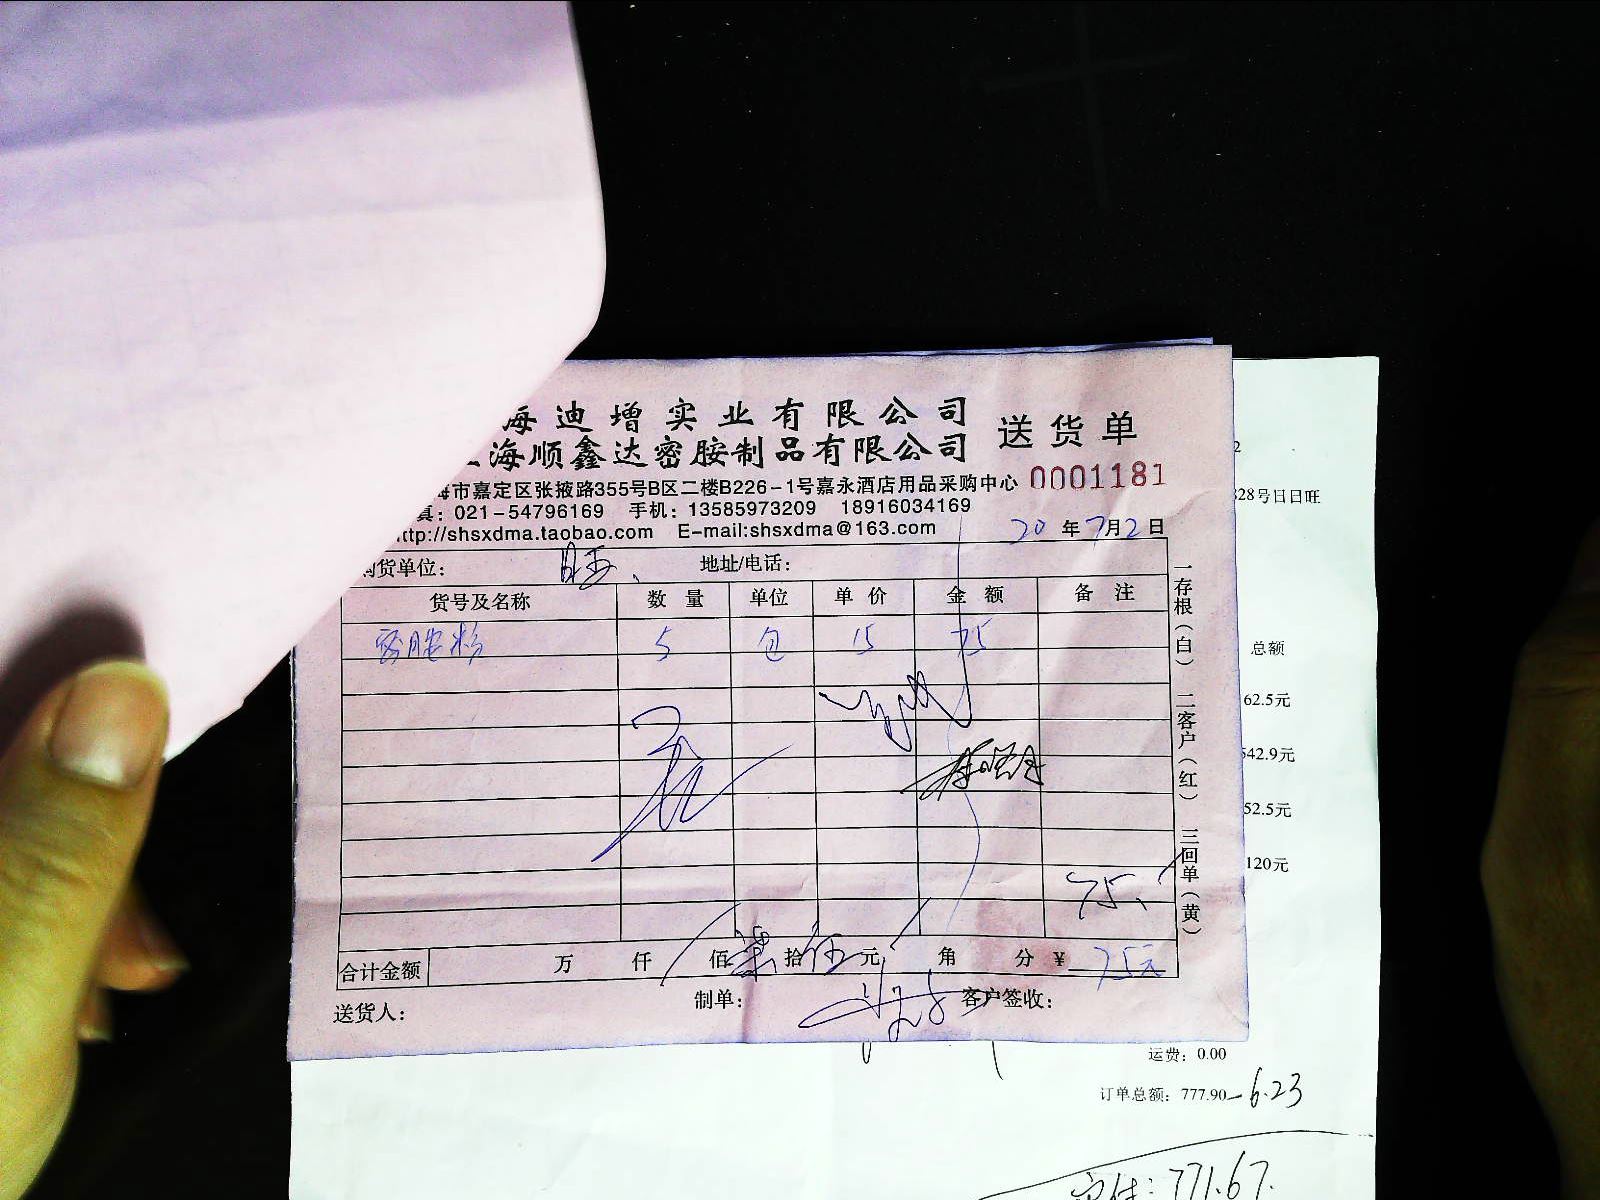 海迪增实业有限公司
海顺鑫达密胺制品有限公司 送货单
海市嘉定区张掖路355号B区二楼B226-1号嘉永酒店用品采购中心 0001181
真：021-54796169 手机：13585973209 18916034169
http://shsxdma.taobao.com E-mail:shsxdma@163.com 20 年 7 月 2 日
购货单位： 日旺 地址/电话：
货号及名称 数量 单位 单价 金额 备注
密胺粉 5 包 15 75
75
合计金额 万 仟 佰 柒 拾 伍 元 角 分 ¥ 75元
送货人： 制单： 客户签收：
一存根（白） 二客户（红） 三回单（黄）
2
328号日日旺
总额
62.5元
542.9元
52.5元
120元
运费：0.00
订单总额：777.90 -6.23
实付：771.67